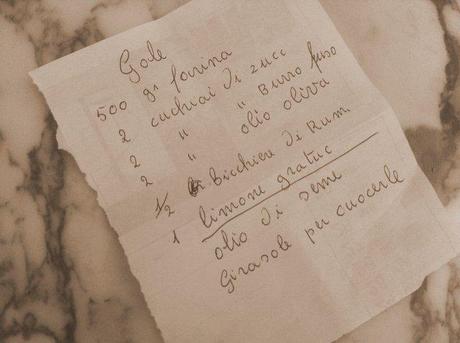 Gale
500 gr farina
2 cucchiai di zucc
2 " " Burro fuso
2 " olio oliva
1/2 Bicchiere di Rum.
1 limone gratuc
olio di seme
Girasole per cuocerle